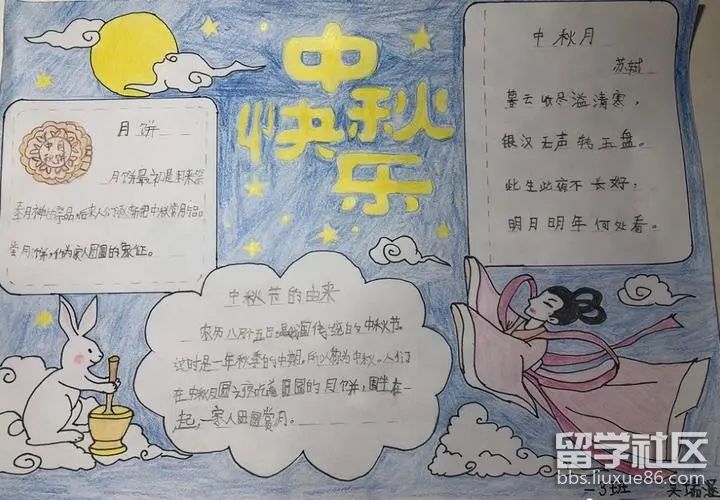 中秋
快乐
月饼
中月
秋饼
月饼最初是用来祭
奉月神的祭品,后来人们逐渐把中秋赏月与品
尝月饼,作为家人团圆的象征。
中秋月
苏轼
暮云收尽溢清寒,
银汉无声转玉盘。
此生此夜不长好,
明月明年何处看。
中秋节的由来
农历八月十五日是我国传统的中秋节。
这时是一年秋季的中期,所以称为中秋。人们
在中秋月圆之夜吃着圆圆的月饼,围坐在一
起,一家人团圆赏月。
班
留学社区
bbs.liuxue86.com